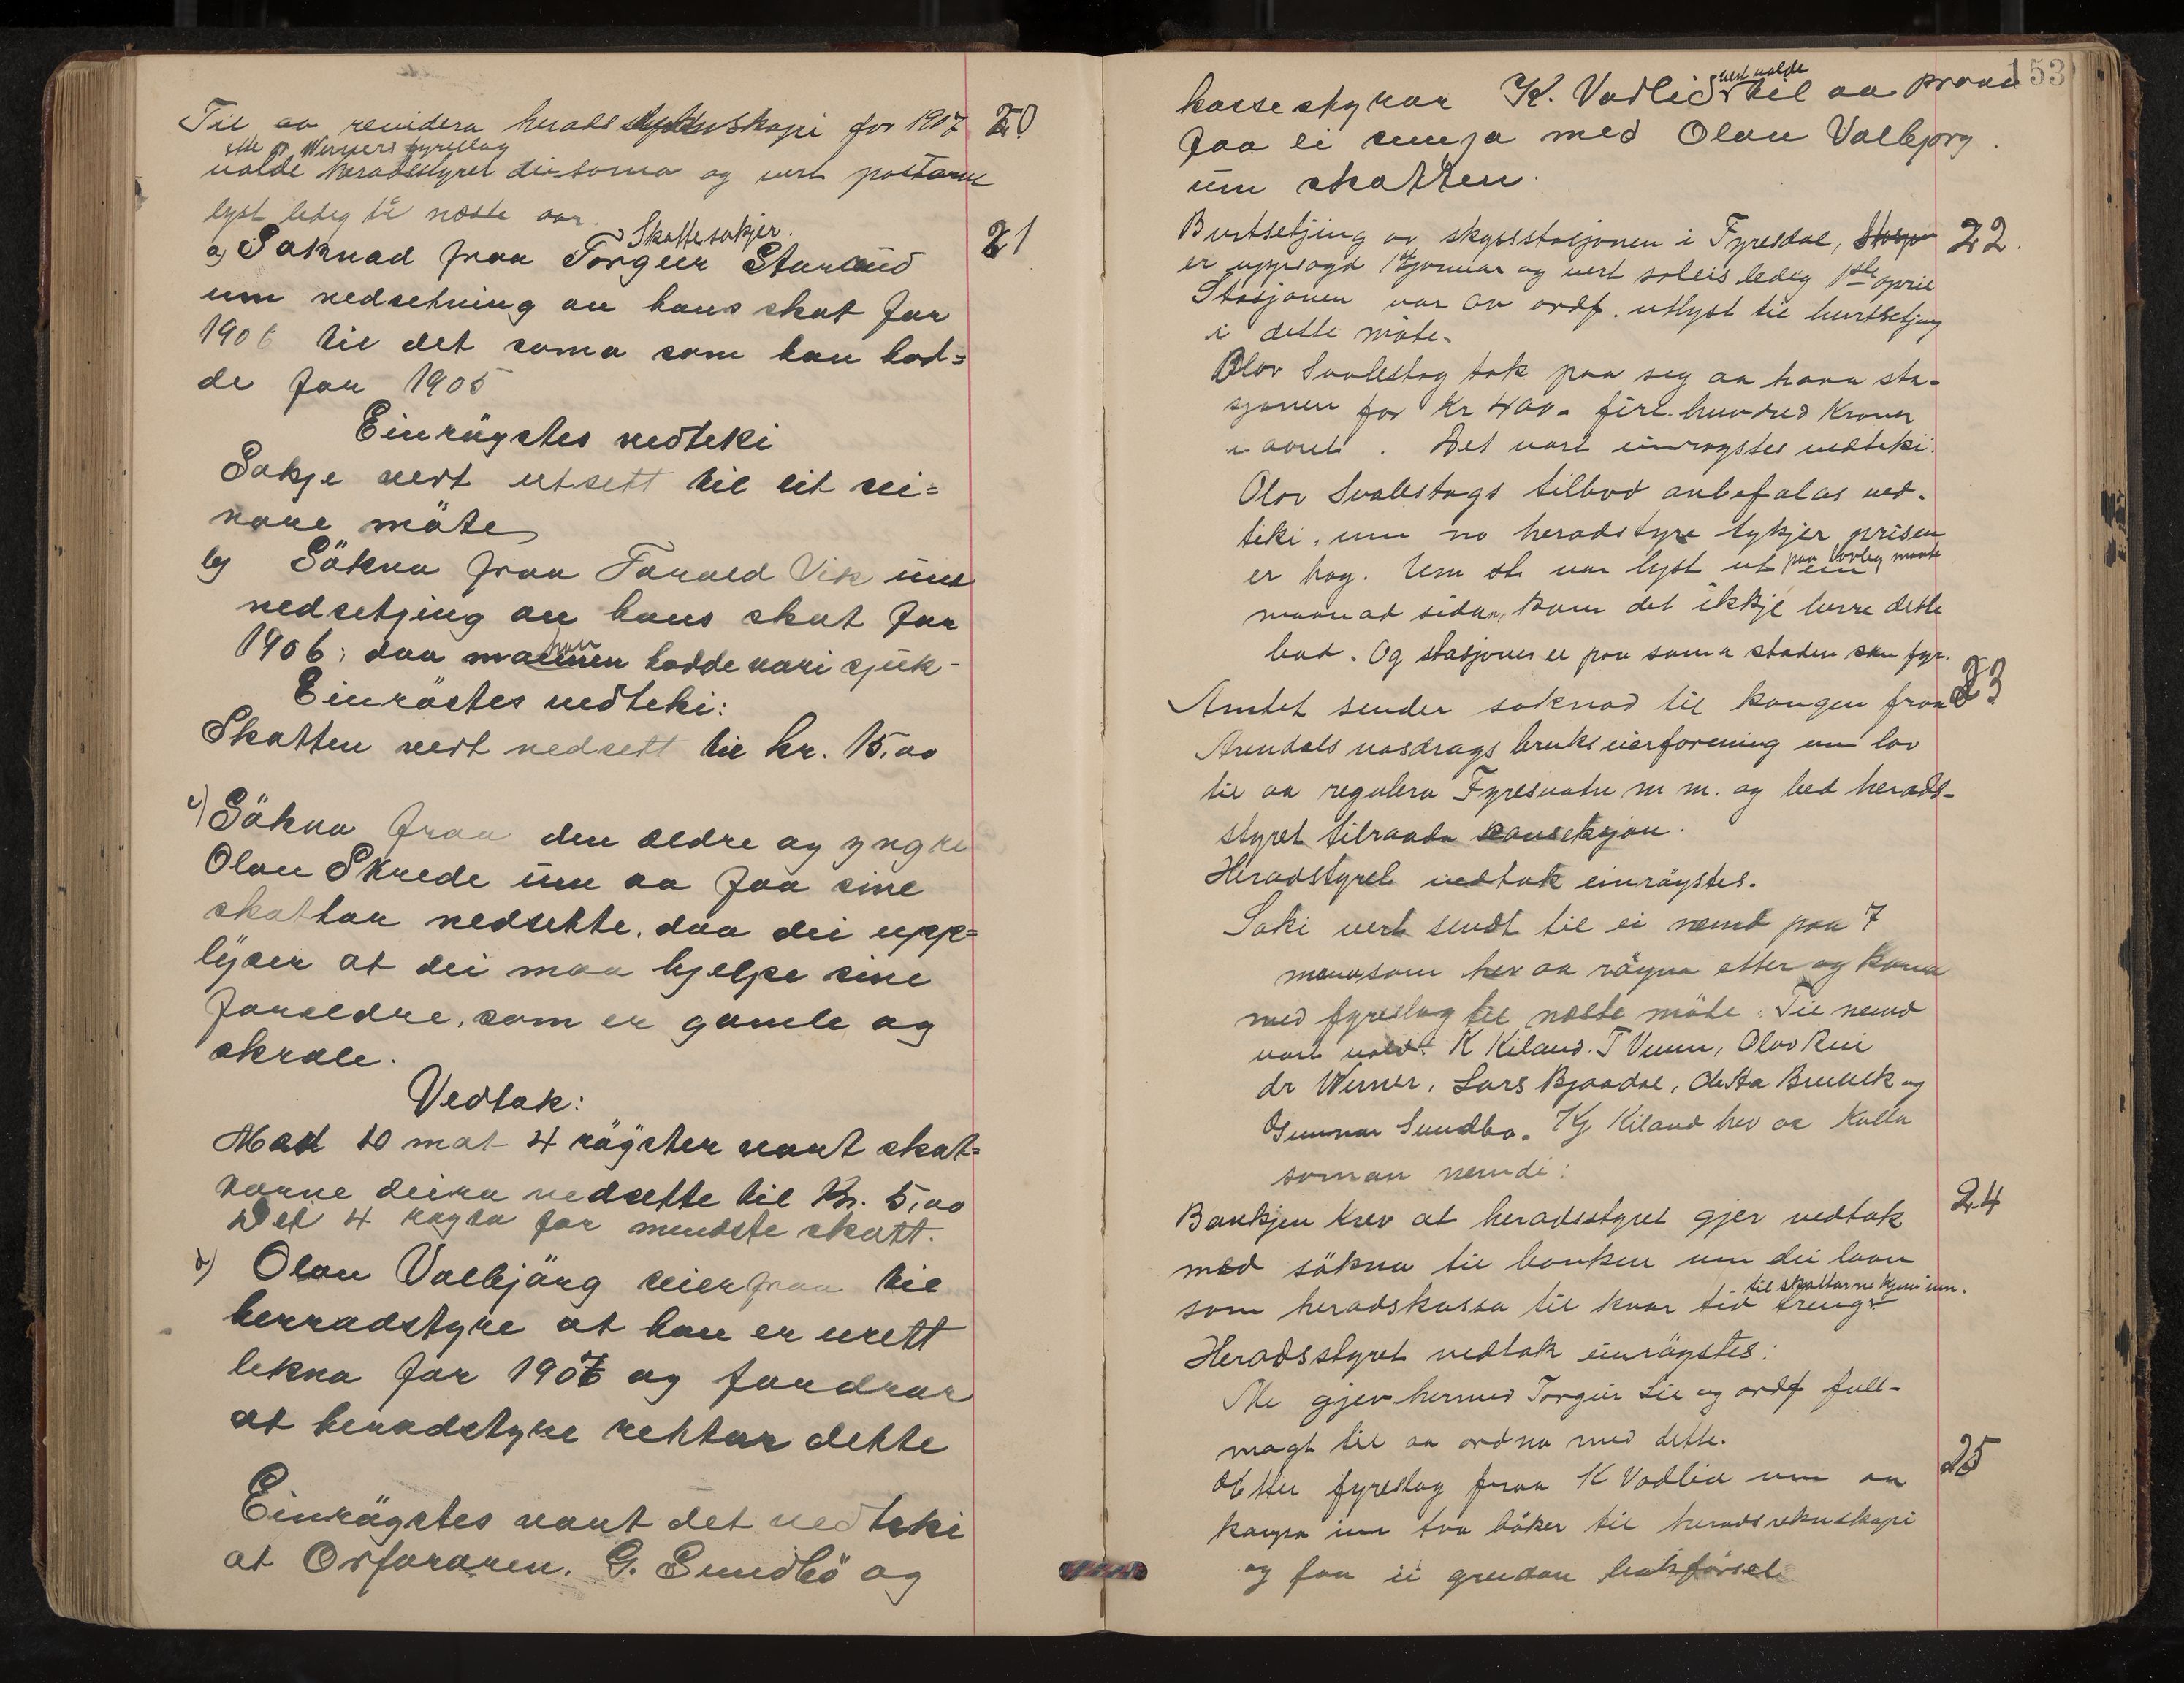 Til aa revidera herads rekneskapi for 1907 20
etter dr Werners fyreslag
valde heradstyret dei soma og vert postarne
lyst ledig til næste aar.
Skattesakjer. 21
a) Søknad fraa Torgeir Staraud
um nedsetning av hans skat for
1906 til det soma som han had=
de for 1905
Einrøystes vedteki
Sakje vert utsett til eit sei=
nare møte
b) Sökna fraa Tarald Vik um
nedsetjing av hans skat for
1906; daa mannen hadde vori sjuk-
Einröstes vedteki:
Skatten vert nedsett til kr. 15,00
c) Sökna fraa den ældre og yngre
Olav Skrede um aa faa sine
skattar nedsette, daa dei upp=
lyser at dei maa hjelpe sine
foreldre, som er gamle og
skrale.
Vedtak:
Mad 10 mot 4 röyster vart skat=
tarne deira nedsette til Kr. 5,00
Dei 4 røysta for mendste skatt.
d) Olav Valbjörg seier fraa til
herradstyre at han er urett
likna for 1907 og fordrar
at heradstyre rettar dette
Einröystes vart det vedteki
at Orföraren, G. Sundbö og
153
kassestyrar K. Vadlid vert valde til aa prøva
faa ei semja med Olav Valbjørg
um skatten.
Burtsetjing av skysstasjonen i Fyresdal, 22.
er uppsagd 1ste januar og vert soleis ledig 1ste april
Stasjonen var av ordf. utlyst til burtsetjing
i dette møte.
Olav Svalestog tok paa seg aa hava sta-
sjonen for Kr 400- fire hundred Kroner
aaret. Det vart einrøystes vedteki:
Olav Svalestogs tilbod anbefalas ved-
teki, um no heradstyre tykjer prisen
er høg. Um st. var lyst ut paa lovleg maate ein
maanad sidan, kom det ikkje berre dette
bod. Og stasjonen er paa sama staden som fyr.
Amtet sender søknad til kongen fraa 23
Arendals vasdrags brukseierforening um lov
til aa regulera Fyresvatn m m. og bed herads-
styret tilraada konsesjon.
Heradstyret vedtok einrøystes.
Saki vert sendt til ei nemd paa 7
mann som hev aa røyna etter og koma
med fyreslag til næste möte. Til nemd
vart vald: K Kiland. T Veum, Olav Rui
dr Werner, Lars Bjaadal, Østa Breivik og
Gunnar Sundbø. Kj Kiland hev aa kalla
saman nemdi:
Bankjen krev at heradsstyret gjer vedtak 24
med sökna til banken um dei laan
som heradskassa til kvar tid treng til skattarne kjem inn.
Heradsstyret vedtok einröystes:
Me gjev hermed Torgeir Lie og ordf full-
magt til aa ordna med dette.
Etter fyreslag fraa K Vadlid um aa 25
kaupa inn tvo böker til heradsrekneskapi
og faa ei greidare bokførsel